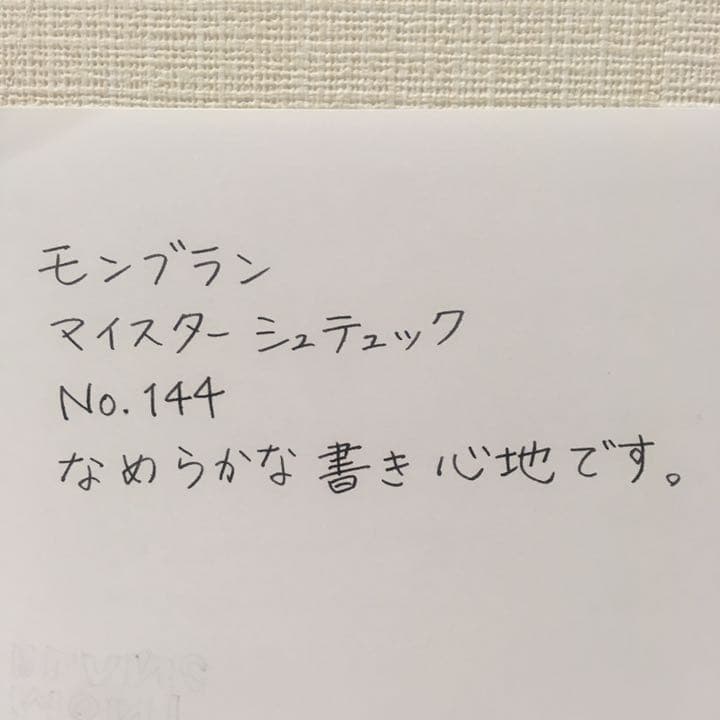 モンブラン
マイスターシュテュック
No.144
なめらかな書き心地です。